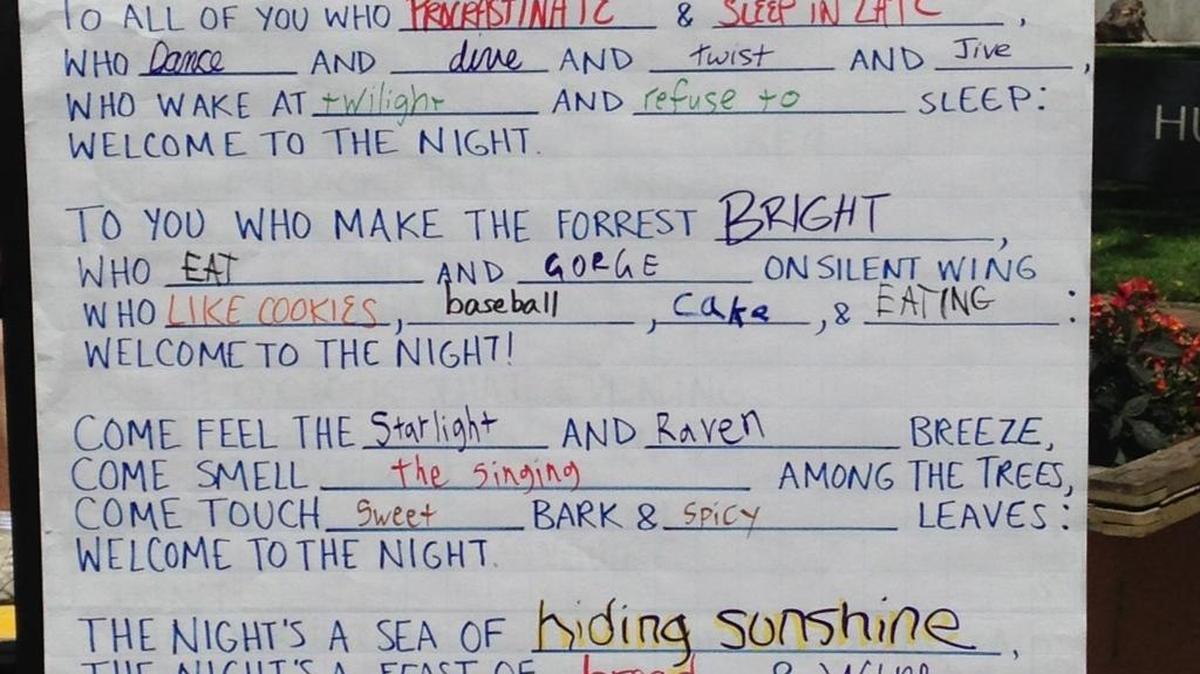 TO ALL OF YOU WHO PROCRASTINATE & SLEEP IN LATE,
WHO Dance AND dive AND twist AND Jive,
WHO WAKE AT twilight AND refuse to SLEEP:
WELCOME TO THE NIGHT.
TO YOU WHO MAKE THE FORREST BRIGHT,
WHO EAT AND GORGE ON SILENT WING
WHO LIKE COOKIES, baseball, Cake, & EATING:
WELCOME TO THE NIGHT!
COME FEEL THE Starlight AND Raven BREEZE,
COME SMELL the singing AMONG THE TREES,
COME TOUCH Sweet BARK & SPICY LEAVES:
WELCOME TO THE NIGHT.
THE NIGHT'S A SEA OF hiding sunshine,
THE NIGHT'S A FEAST OF bread &